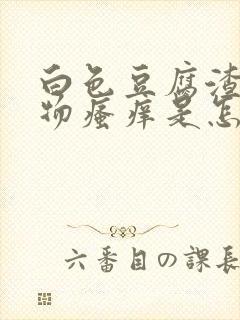 白色豆腐渣
物瘙痒是怎
六番目の課長